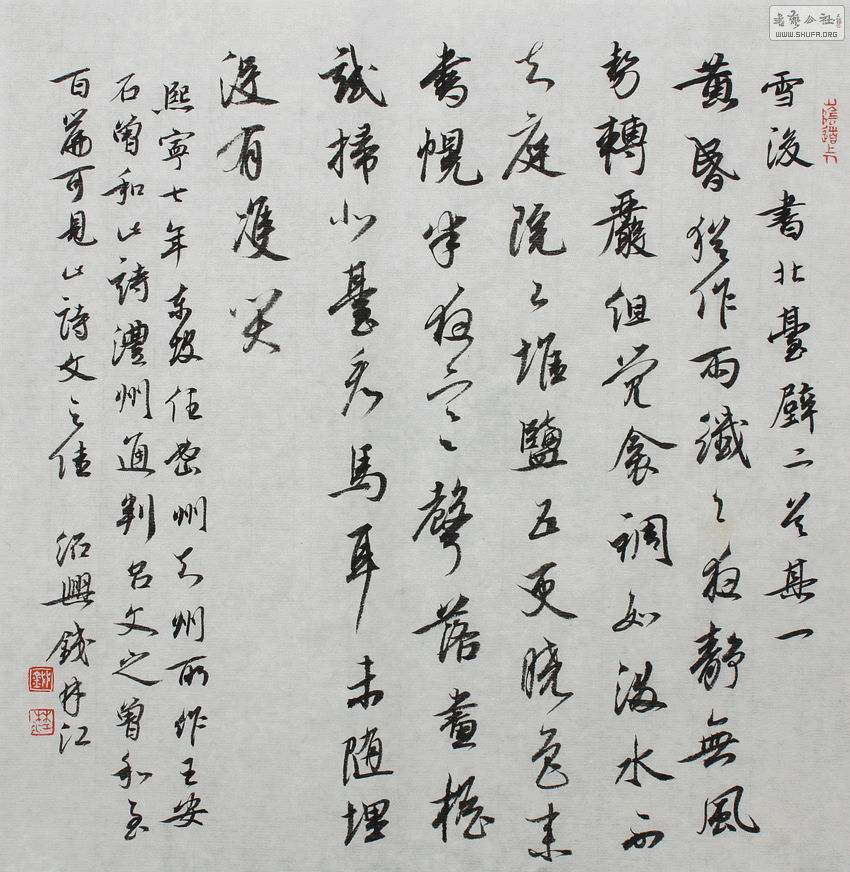 書藝公社
WWW.SHUFA.ORG
山陰道上
雪後書北臺壁二首其一
黄昏猶作雨纖々夜靜無風
勢轉嚴但覺衾裯如潑水不
知庭院已堆鹽五更曉色来
書幌半夜寒聲落畫檐
試掃北臺看馬耳未隨埋
没有雙尖
熙寧七年東坡任密州知州所作王安
石曾和此詩澧州通判吕文之曾和至
百篇可見此詩文之佳 紹興錢林江